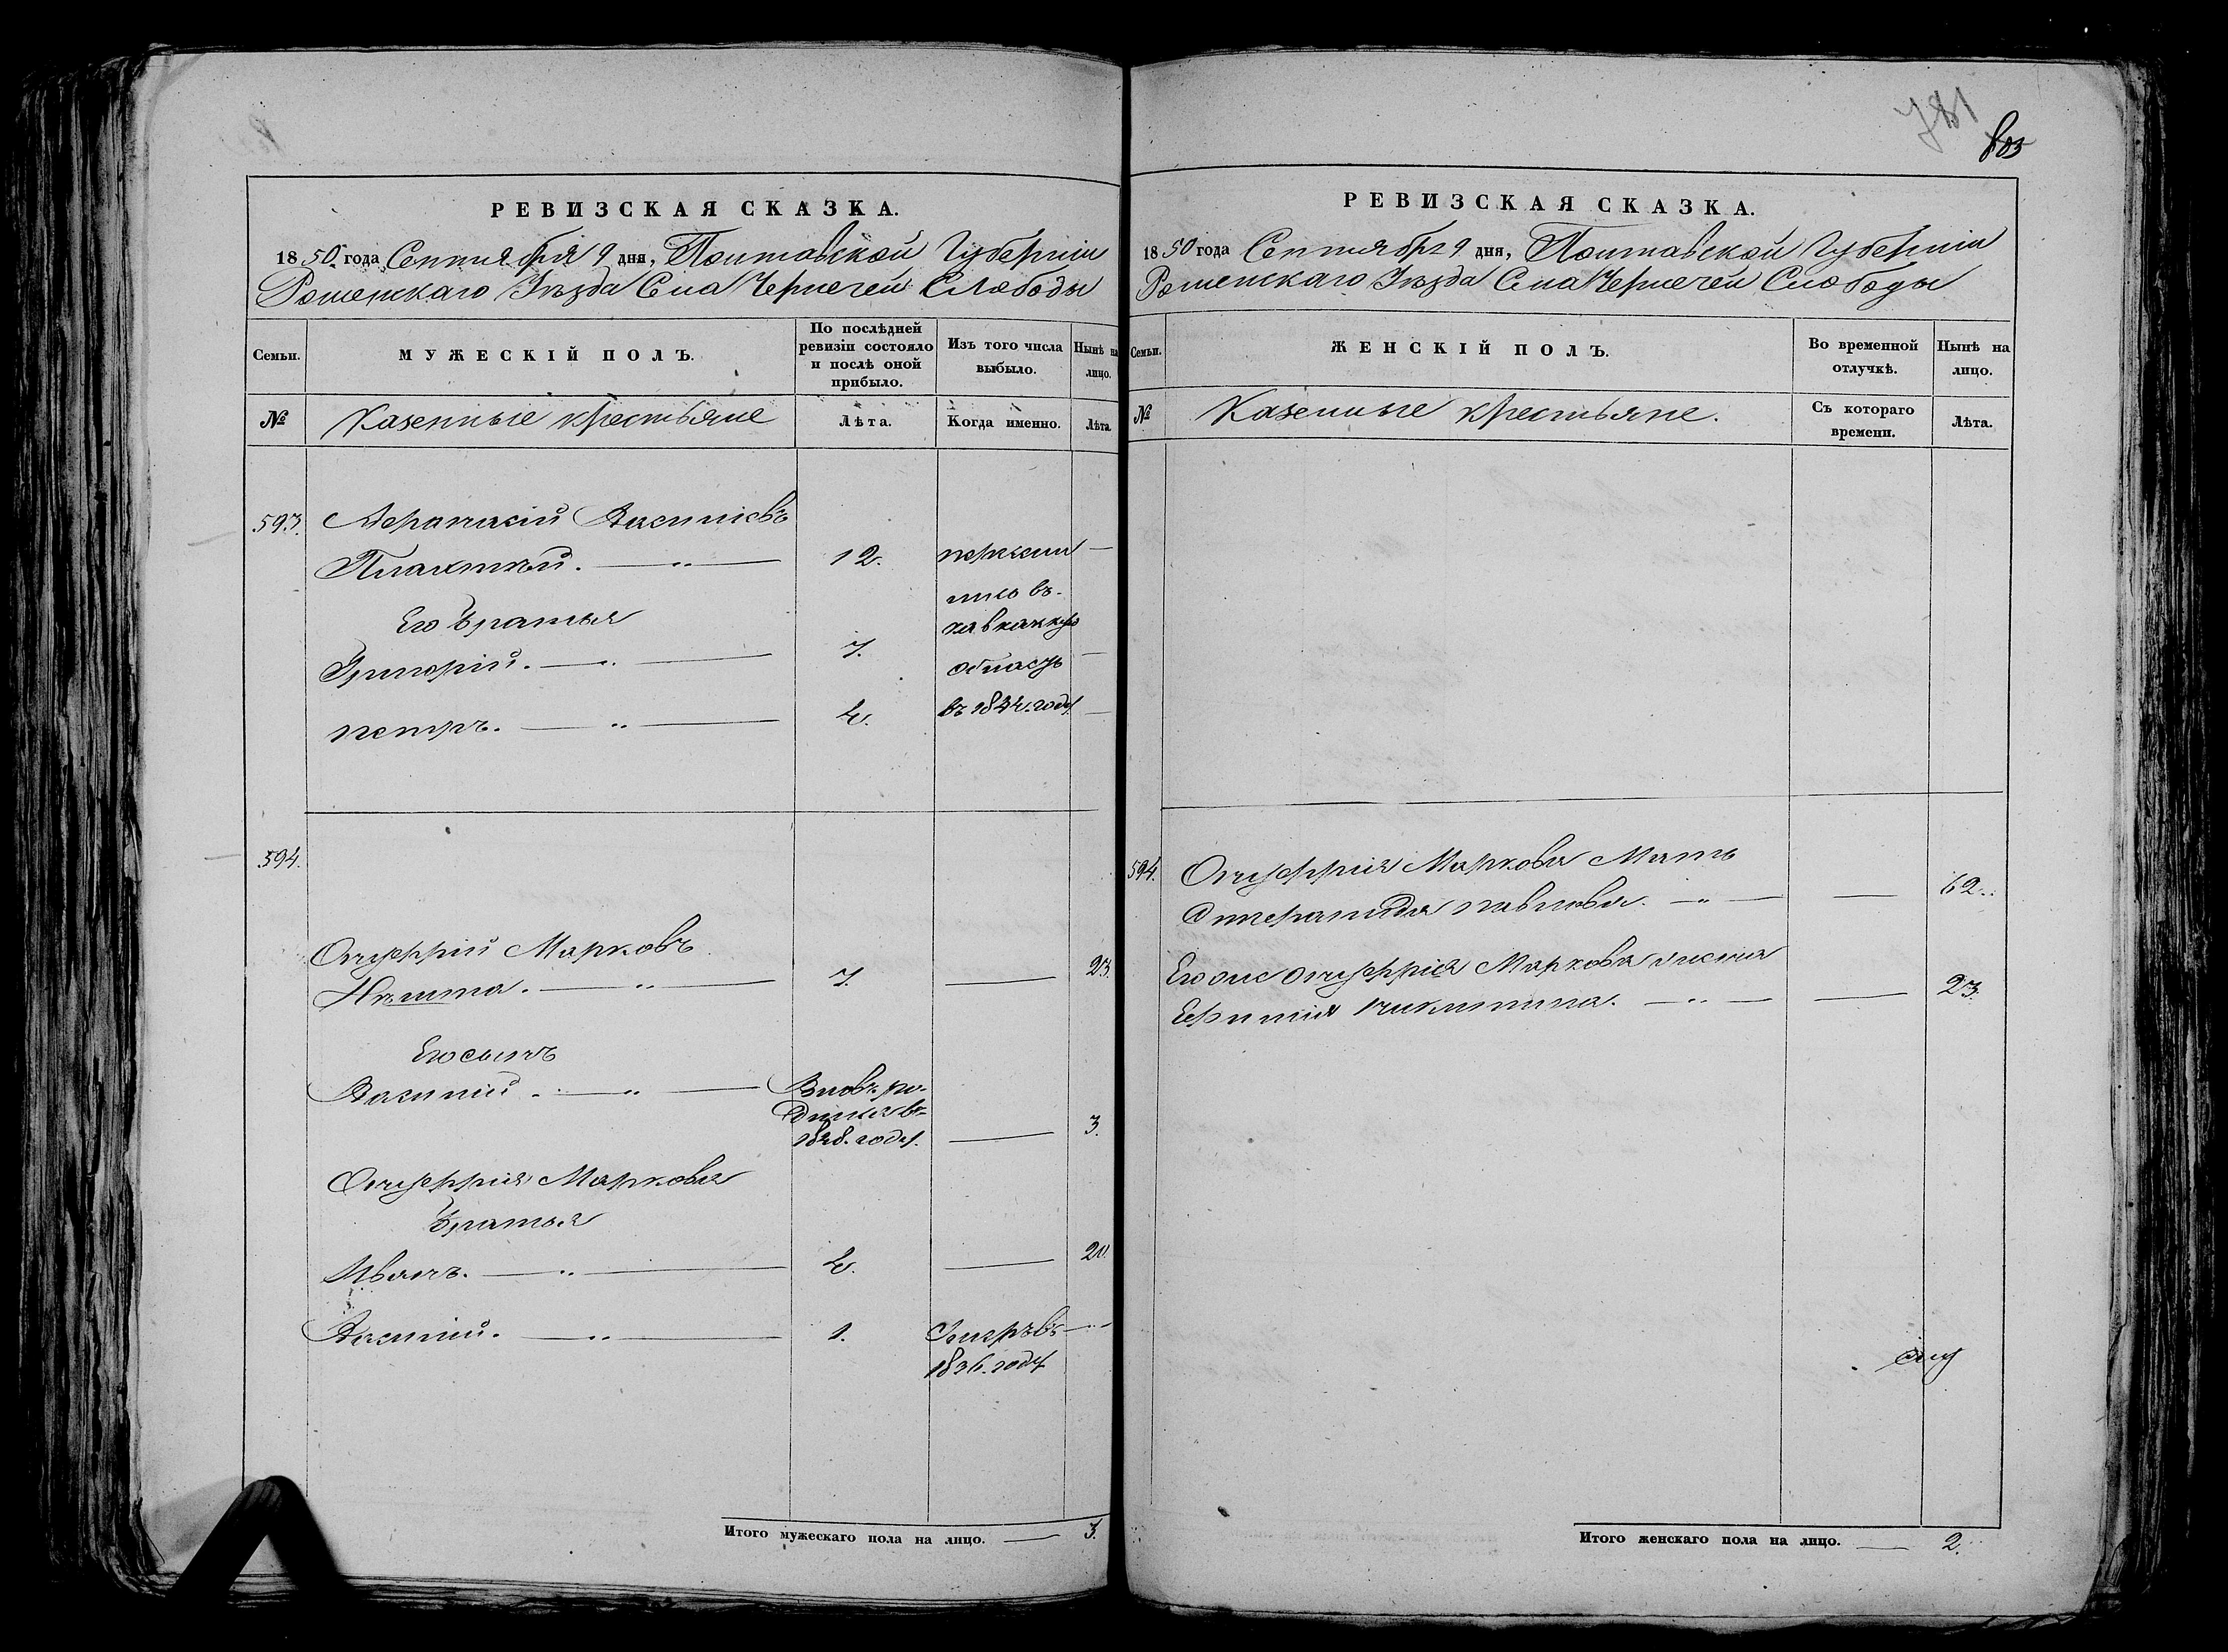 781
803
РЕВИЗСКАЯ СКАЗКА.
1850 года Сентября 9 дня, Полтавской Губернiи
Роменскаго Уѣзда Села Чернечей Слободы
Семьи.
МУЖЕСКІЙ ПОЛЪ.
По послѣдней ревизіи состояло и послѣ оной прибыло.
Изъ того числа выбыло.
Нынѣ на лицо.
№
Казенные крестьяне
Лѣта.
Когда именно.
Лѣта.
593. Афанасій Василіевъ
12. —
Его братья
Григорій. — 7. область —
Петръ. — 4. въ году —
594.
Онуфрій Марковъ
7. — 23.
Его сынъ
Василій. — Вновь ро-
дился въ
1848. году. — 3.
Онуфрія Маркова
братья
Иванъ. — 4. — 20.
Василій. — 1. Умеръ въ —
1836. году
Итого мужескаго пола на лицо. — 3.
РЕВИЗСКАЯ СКАЗКА.
1850 года Сентября 9 дня, Полтавской Губернiи
Роменскаго Уѣзда Села Чернечей Слободы
Семьи.
ЖЕНСКІЙ ПОЛЪ.
Во временной отлучкѣ.
Нынѣ на лицо.
№
Казенные крестьяне.
Съ котораго времени.
Лѣта.
594. Онуфрія Маркова Мать
Павлова. — — 62.
Его же Онуфрія Маркова жена
Никитина. — — 23.
Итого женскаго пола на лицо. — 2.